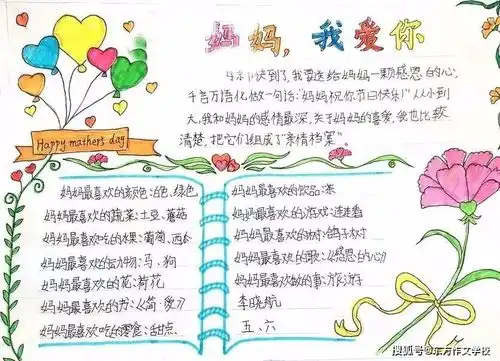 妈妈,我爱你
母亲节快到了,我要送给妈妈一颗感恩的心,
千言万语化做一句话:“妈妈祝你节日快乐!”从小到
大,我和妈妈的感情最深,关于妈妈的喜爱,我也比较
清楚,把它们组成了“亲情档案”。
Happy mathers day
妈妈最喜欢的颜色:白色、绿色
妈妈最喜欢的蔬菜:土豆、蘑菇
妈妈最喜欢吃的水果:葡萄、西瓜
妈妈最喜欢的动物:马、狗
妈妈最喜欢的花:荷花
妈妈最喜欢的书:《简·爱》
妈妈最喜欢吃的零食:甜点
妈妈最喜欢的饮品:茶
妈妈最喜欢的游戏:连连看
妈妈最喜欢的树:鸽子树
妈妈最喜欢的歌:《感恩的心》
妈妈最喜欢做的事:旅游
李晓航
五、六
搜狐号@东方作文学校